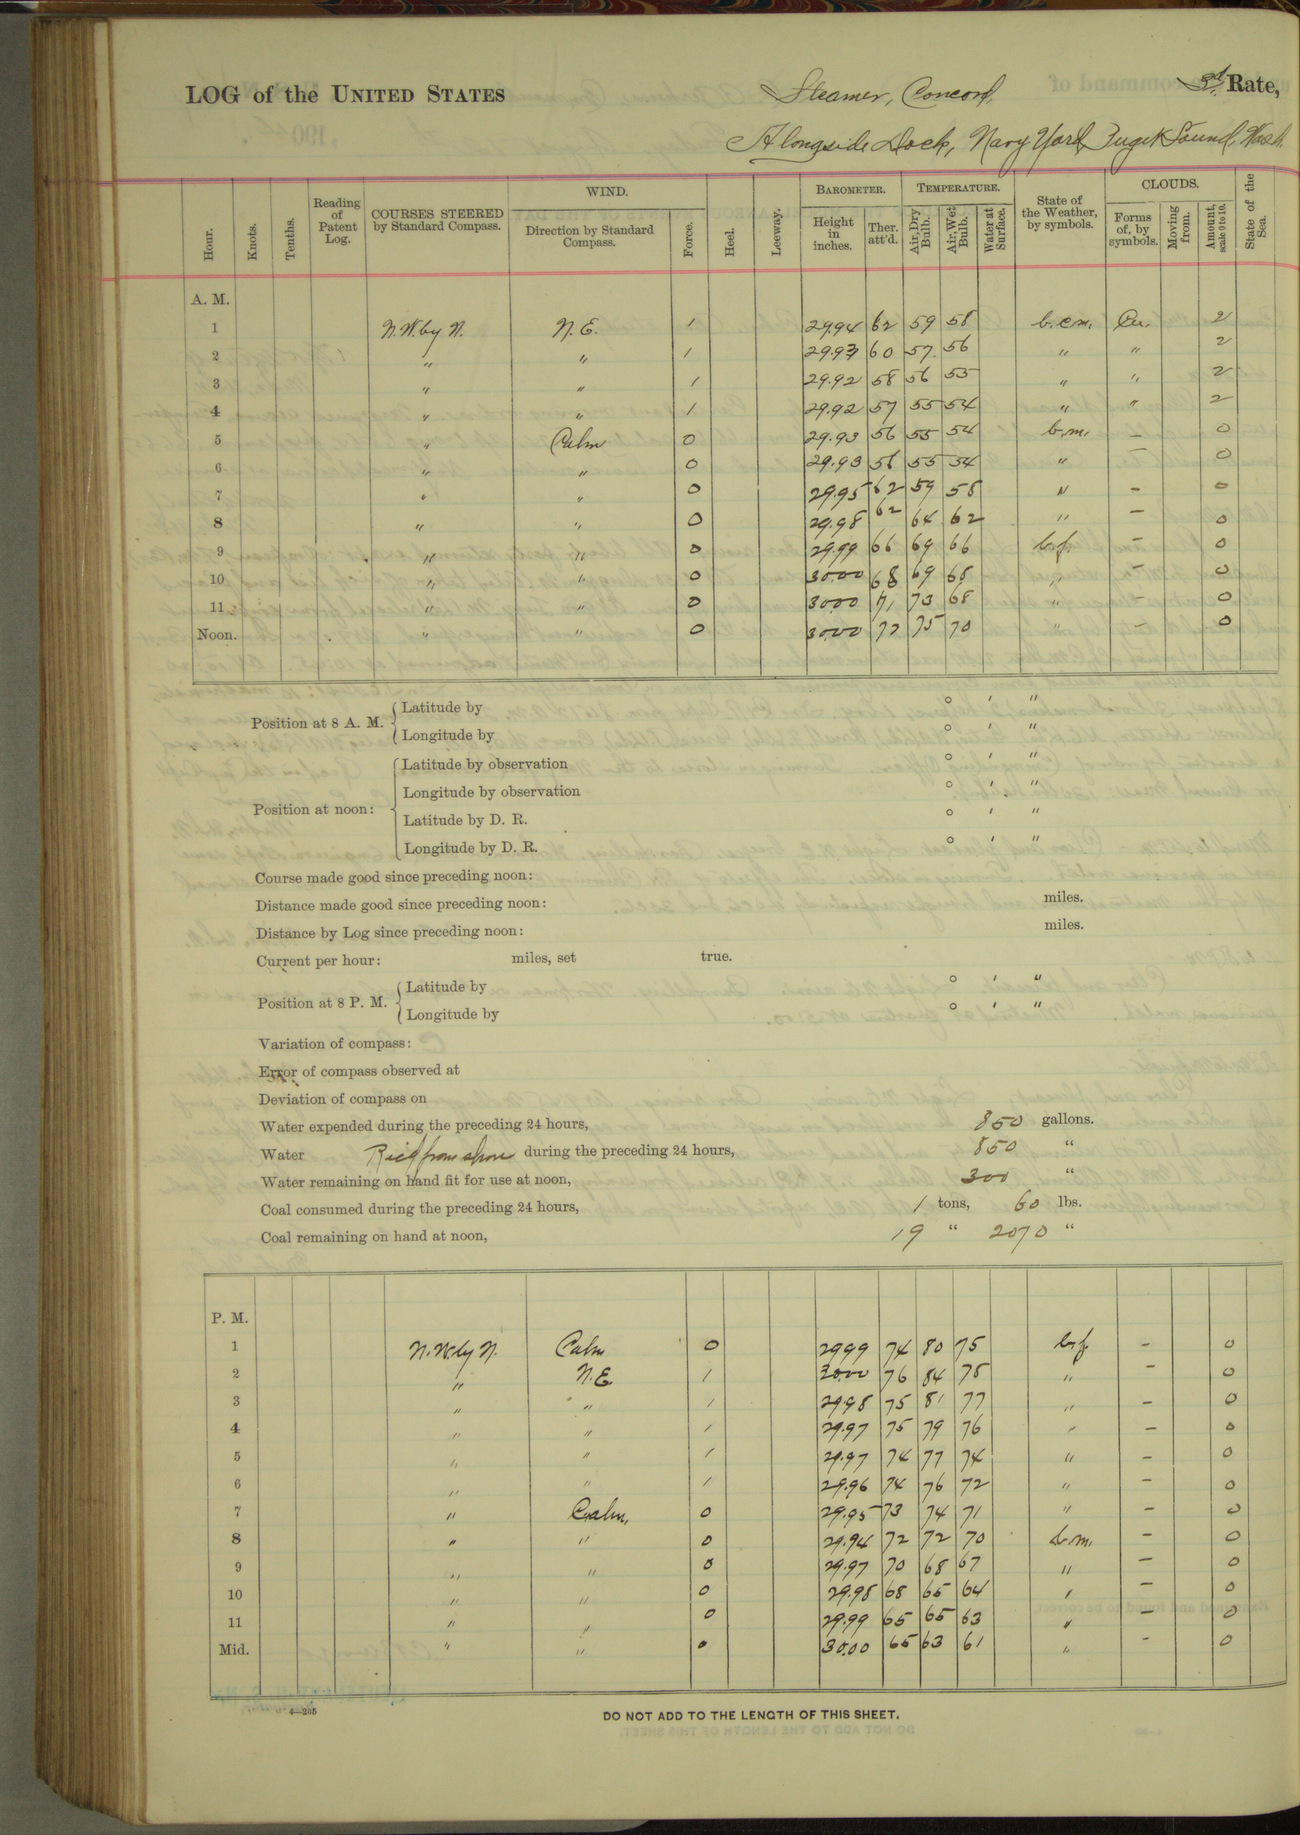 LOG of the UNITED STATES Steamer, Concord, 3d Rate,
Alongside Dock, Navy Yard Puget Sound, Wash.
Hour. Knots. Tenths. Reading of Patent Log. COURSES STEERED by Standard Compass. WIND. Direction by Standard Compass. Force. Heel. Leeway. BAROMETER. Height in inches. Ther. att'd. TEMPERATURE. Air, Dry Bulb. Air, Wet Bulb. Water at Surface. State of the Weather, by symbols. CLOUDS. Forms of, by symbols. Moving from. Amount, scale 0 to 10. State of the Sea.
A. M.
1 N.W. by N. N.E. 1 29.94 62 59 58 b.c.m. Cu. 2
2 " " 1 29.93 60 57 56 " " 2
3 " " 1 29.92 58 56 55 " " 2
4 " " 1 29.92 57 55 54 " " 2
5 " Calm 0 29.93 56 55 54 b.m. — 0
6 " " 0 29.93 56 55 54 " — 0
7 " " 0 29.95 62 59 58 " — 0
8 " " 0 29.98 62 64 62 " — 0
9 " " 0 29.99 66 69 66 b.f. — 0
10 " " 0 30.00 68 69 68 " — 0
11 " " 0 30.00 71 73 68 " — 0
Noon. " " 0 30.00 72 75 70 " — 0
Position at 8 A. M. Latitude by ° ' "
Longitude by ° ' "
Position at noon: Latitude by observation ° ' "
Longitude by observation ° ' "
Latitude by D. R. ° ' "
Longitude by D. R. ° ' "
Course made good since preceding noon:
Distance made good since preceding noon: miles.
Distance by Log since preceding noon: miles.
Current per hour: miles, set true.
Position at 8 P. M. Latitude by ° ' "
Longitude by ° ' "
Variation of compass:
Error of compass observed at
Deviation of compass on
Water expended during the preceding 24 hours, 850 gallons.
Water Rec'd from shore during the preceding 24 hours, 850 "
Water remaining on hand fit for use at noon, 300 "
Coal consumed during the preceding 24 hours, 1 tons, 60 lbs.
Coal remaining on hand at noon, 19 " 2070 "
P. M.
1 N.W. by N. Calm 0 29.99 74 80 75 b.f. — 0
2 " N.E. 1 30.00 76 84 78 " — 0
3 " " 1 29.98 75 81 77 " — 0
4 " " 1 29.97 75 79 76 " — 0
5 " " 1 29.97 74 77 74 " — 0
6 " " 1 29.96 74 76 72 " — 0
7 " Calm, 0 29.95 73 74 71 " — 0
8 " " 0 29.94 72 72 70 b.m. — 0
9 " " 0 29.97 70 68 67 " — 0
10 " " 0 29.98 68 65 64 " — 0
11 " " 0 29.99 65 65 63 " — 0
Mid. " " 0 30.00 65 63 61 " — 0
4—205
DO NOT ADD TO THE LENGTH OF THIS SHEET.